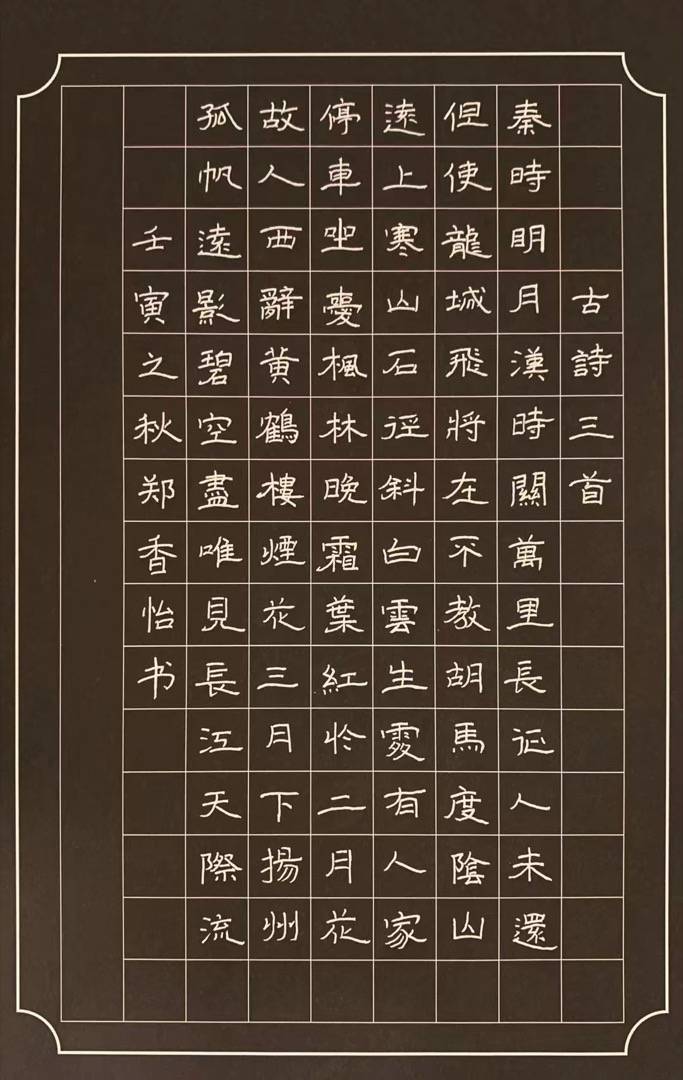 古詩三首
秦時明月漢時關萬里長征人未還
但使龍城飛將在不教胡馬度陰山
遠上寒山石徑斜白雲生處有人家
停車坐愛楓林晚霜葉紅於二月花
故人西辭黃鶴樓煙花三月下揚州
孤帆遠影碧空盡唯見長江天際流
壬寅之秋郑香怡书